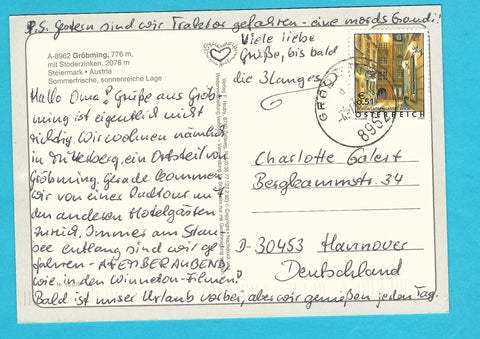 P.S. Gestern sind wir Traktor gefahren - eine mords Gaudi!
A-8962 Gröbming, 776 m,
mit Stoderzinken, 2076 m
Steiermark • Austria
Sommerfrische, sonnenreiche Lage
Hallo Oma! Grüße aus Gröb-
ming ist eigentlich nicht
richtig. Wir wohnen nämlich
in Mitterberg, ein Ortsteil von
Gröbming. Gerade kommen
wir von einer Radtour mit
den anderen Hotelgästen
zurück. Immer am Stau-
see entlang sind wir ge-
fahren - ATEMBERAUBEND,
wie in den Winnetou-Filmen!
Bald ist unser Urlaub vorbei, aber wir genießen jeden Tag.
Viele liebe
Grüße, bis bald
die 3 Langes
GRÖB
8962
0,51
ÖSTERREICH
Charlotte Galert
Bergkammstr. 34
D-30453 Hannover
Deutschland